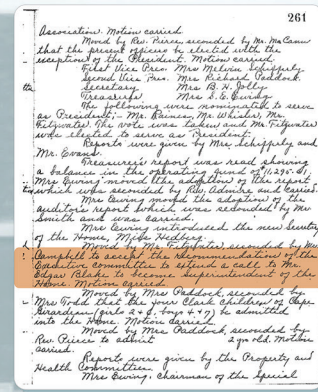 261
Association. Motion carried.
Moved by Rev. Pierce seconded by Mr. McCann
that the present officers be elected with the
exception of the President. Motion carried.
First Vice Pres. Mrs Melvin Schippely
Second Vice Pres. Mrs Richard Paddock
Secretary Mrs B. H. Jolly
Treasurer Mrs S. E. Ewing
The following were nominated to serve
as President; - Mr. Raines, Mr. Wisler, Mr.
Fitzwater. The vote was taken and Mr. Fitzwater
was elected to serve as President.
Reports were given by Mrs. Schippely and
Mr. Evans.
Treasurer's report was read showing
a balance in the operating fund of
Mrs Ewing moved the adoption of the report
which was seconded by Rev. and carried.
Mrs Ewing moved the adoption of the
auditor's report which was seconded by Mr
Smith and was carried.
Mrs Ewing introduced the new Secretary
of the Home, Miss Hedberg.
Moved by Mr. Fitzwater, seconded by Mrs
Campbell to accept the Recommendation of the
Executive Committee to extend a call to Mr.
Edgar Blake to become superintendent of the
Home. Motion carried.
Moved by Mrs Paddock, seconded by
Mrs Todd that the four Clark children of Cape
Girardeau (girls 2 & boys 4 & 7) be admitted
into the Home. Motion carried.
Moved by Mrs Paddock, seconded by
Rev. Pierce to admit 2 yr old. Motion
carried.
Reports were given by the Property and
Health Committees.
Mrs Ewing, chairman of the Special